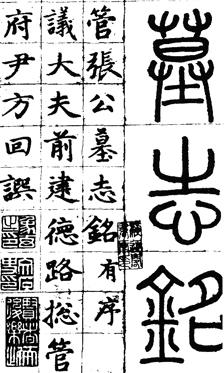 墓志銘
管張公墓志銘有序
議大夫前建德路総管
府尹方回譔